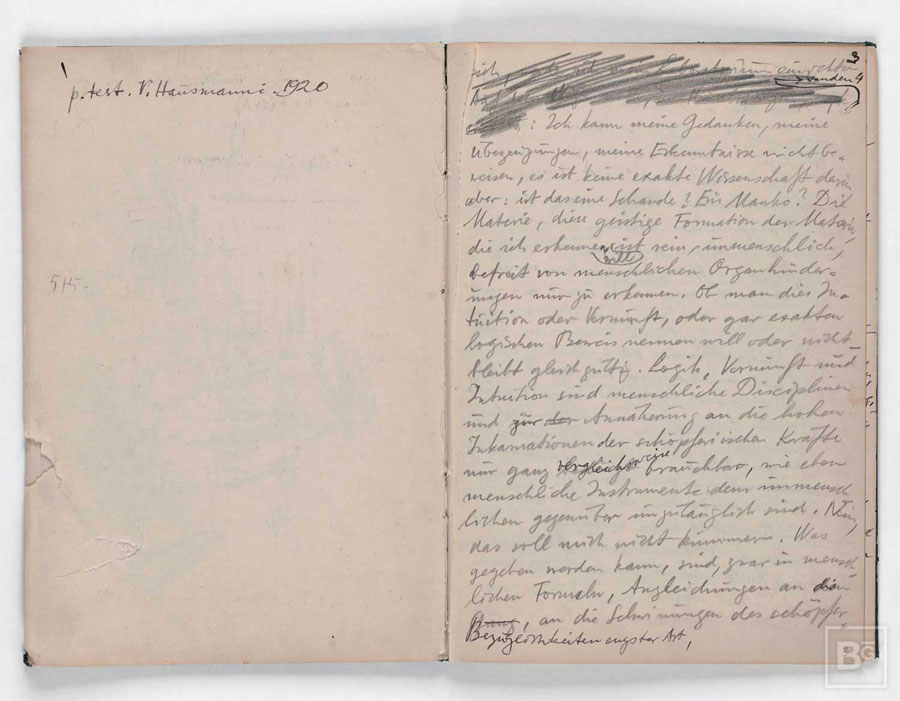 p. test. V. Hausmanni. 1920
515.
3
ich,
: Ich kann meine Gedanken, meine
Überzeugungen, meine Erkenntnisse nicht be-
weisen, es ist keine exakte Wissenschaft darin
aber: ist das eine Schande? Ein Manko? Die
Materie, diese geistige Formation der Materie,
die ich erkenne, ist rein, unmenschlich,
befreit von menschlichen Organhinder-
ungen nur zu erkennen. Ob man dies In-
tuition oder Vernunft, oder gar exakten
logischen Beweis nennen will oder nicht
bleibt gleichgültig. Logik, Vernunft und
Intuition sind menschliche Disciplinen
und zur der Annäherung an die hohen
Inkarnationen der schöpferischen Kräfte
nur ganz vergleichsweise brauchbar, wie eben
menschliche Instrumente dem unmensch
lichen gegenüber unzulänglich sind. Nein,
das soll mich nicht kümmern. Was
gegeben werden kann, sind, zwar in mensch
lichen Formeln, Angleichungen an
, an die Schwingungen des schöpfer-
Bezüglichkeiten engster Art,
BG